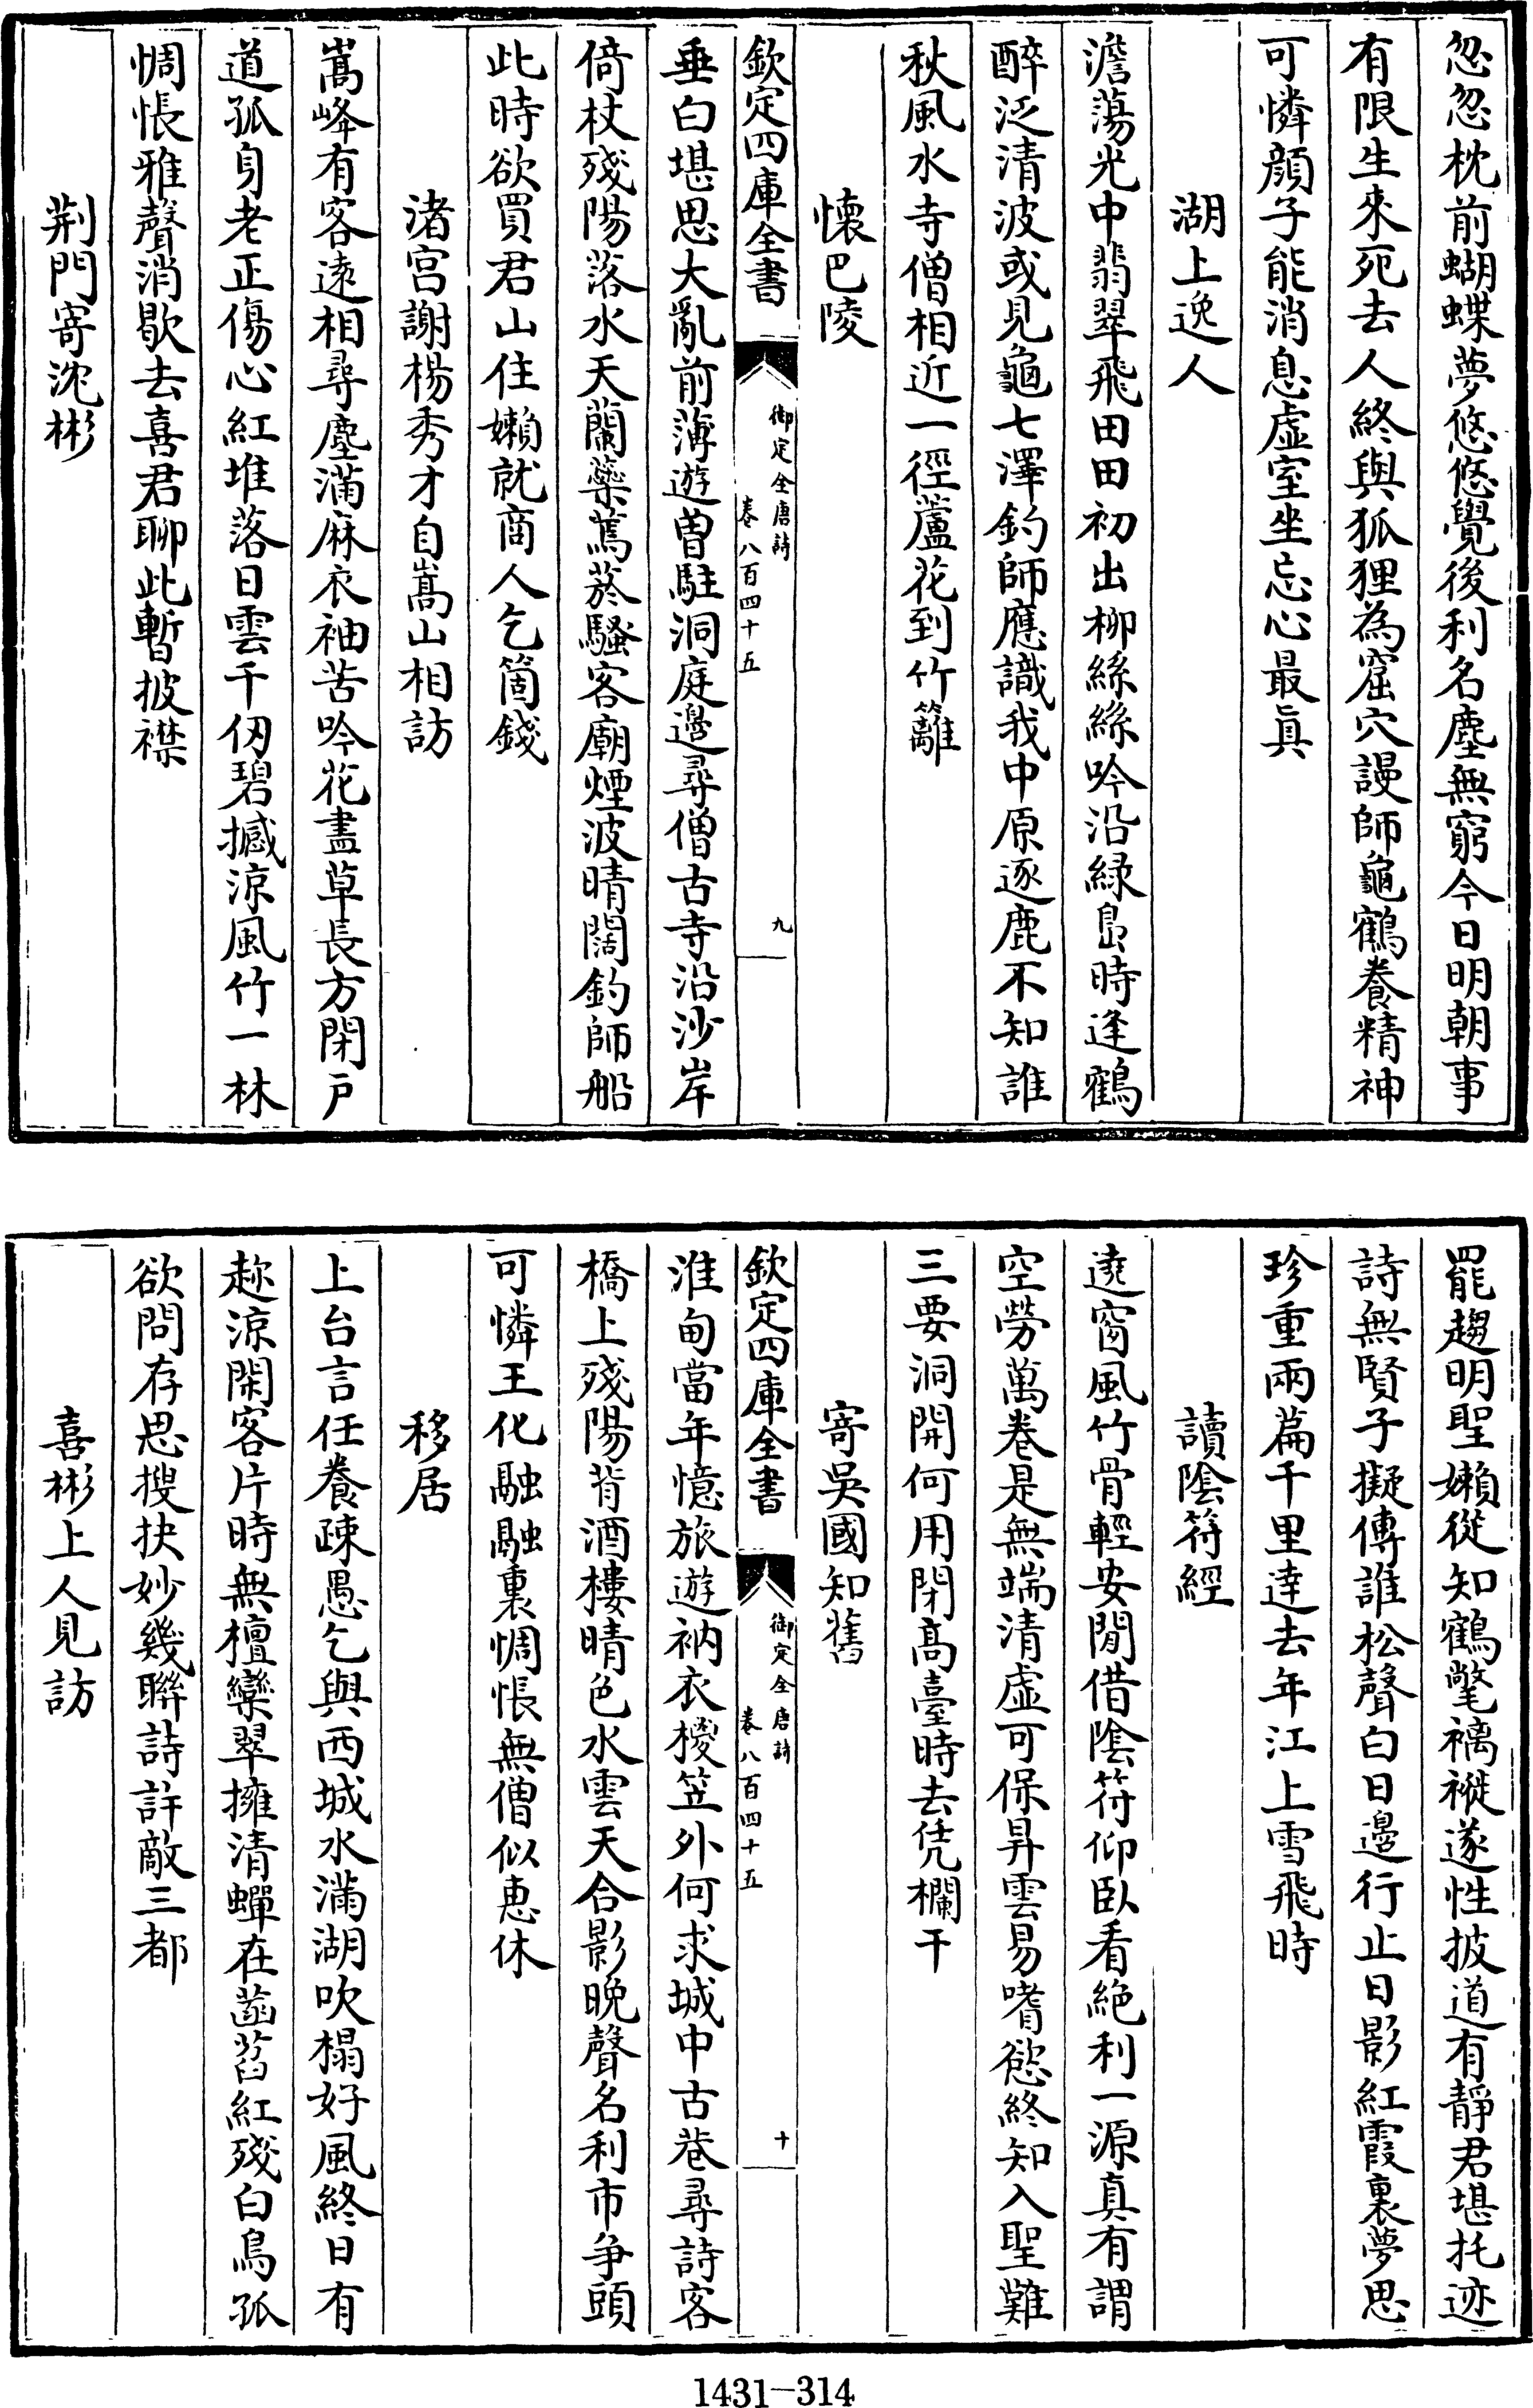 忽忽枕前蝴蝶夢悠悠覺後利名塵無窮今日明朝事
有限生來死去人終與狐狸為窟穴謾師龜鶴養精神
可憐顔子能消息虚室坐忘心最真
湖上逸人
澹蕩光中翡翠飛田田初出柳絲絲吟沿緑島時逢鶴
醉泛清波或見龜七澤釣師應識我中原逐鹿不知誰
秋風水寺僧相近一徑蘆花到竹籬
懐巴陵
欽定四庫全書
御定全唐詩
卷八百四十五
九
垂白堪思大亂前薄遊曽駐洞庭邊尋僧古寺沿沙岸
倚杖殘陽落水天蘭蘂蔫菸騷客廟煙波晴闊釣師船
此時欲買君山住嬾就商人乞箇錢
渚宫謝楊秀才自嵩山相訪
嵩峰有客逺相尋塵滿麻衣袖苦吟花盡草長方閉戸
道孤身老正傷心紅堆落日雲千仭碧撼涼風竹一林
惆悵雅聲消歇去喜君聊此暫披襟
荆門寄沈彬
罷趨明聖嬾從知鶴氅褵褷遂性披道有靜君堪托迹
詩無賢子擬傳誰松聲白日邊行止日影紅霞裏夢思
珍重兩篇千里達去年江上雪飛時
讀隂符經
遶窗風竹骨輕安閒借隂符仰卧看絶利一源真有謂
空勞萬卷是無端清虚可保昇雲易嗜慾終知入聖難
三要洞開何用閉髙臺時去凭欄干
寄吳國知舊
欽定四庫全書
御定全唐詩
卷八百四十五
十
淮甸當年憶旅遊衲衣椶笠外何求城中古巷尋詩客
橋上殘陽背酒樓晴色水雲天合影晚聲名利市爭頭
可憐王化融融裏惆悵無僧似恵休
移居
上台言任養疎愚乞與西城水滿湖吹榻好風終日有
趂涼閑客片時無檀欒翠擁清蟬在菡萏紅殘白鳥孤
欲問存思搜抉妙幾聯詩許敵三都
喜彬上人見訪
1431-314